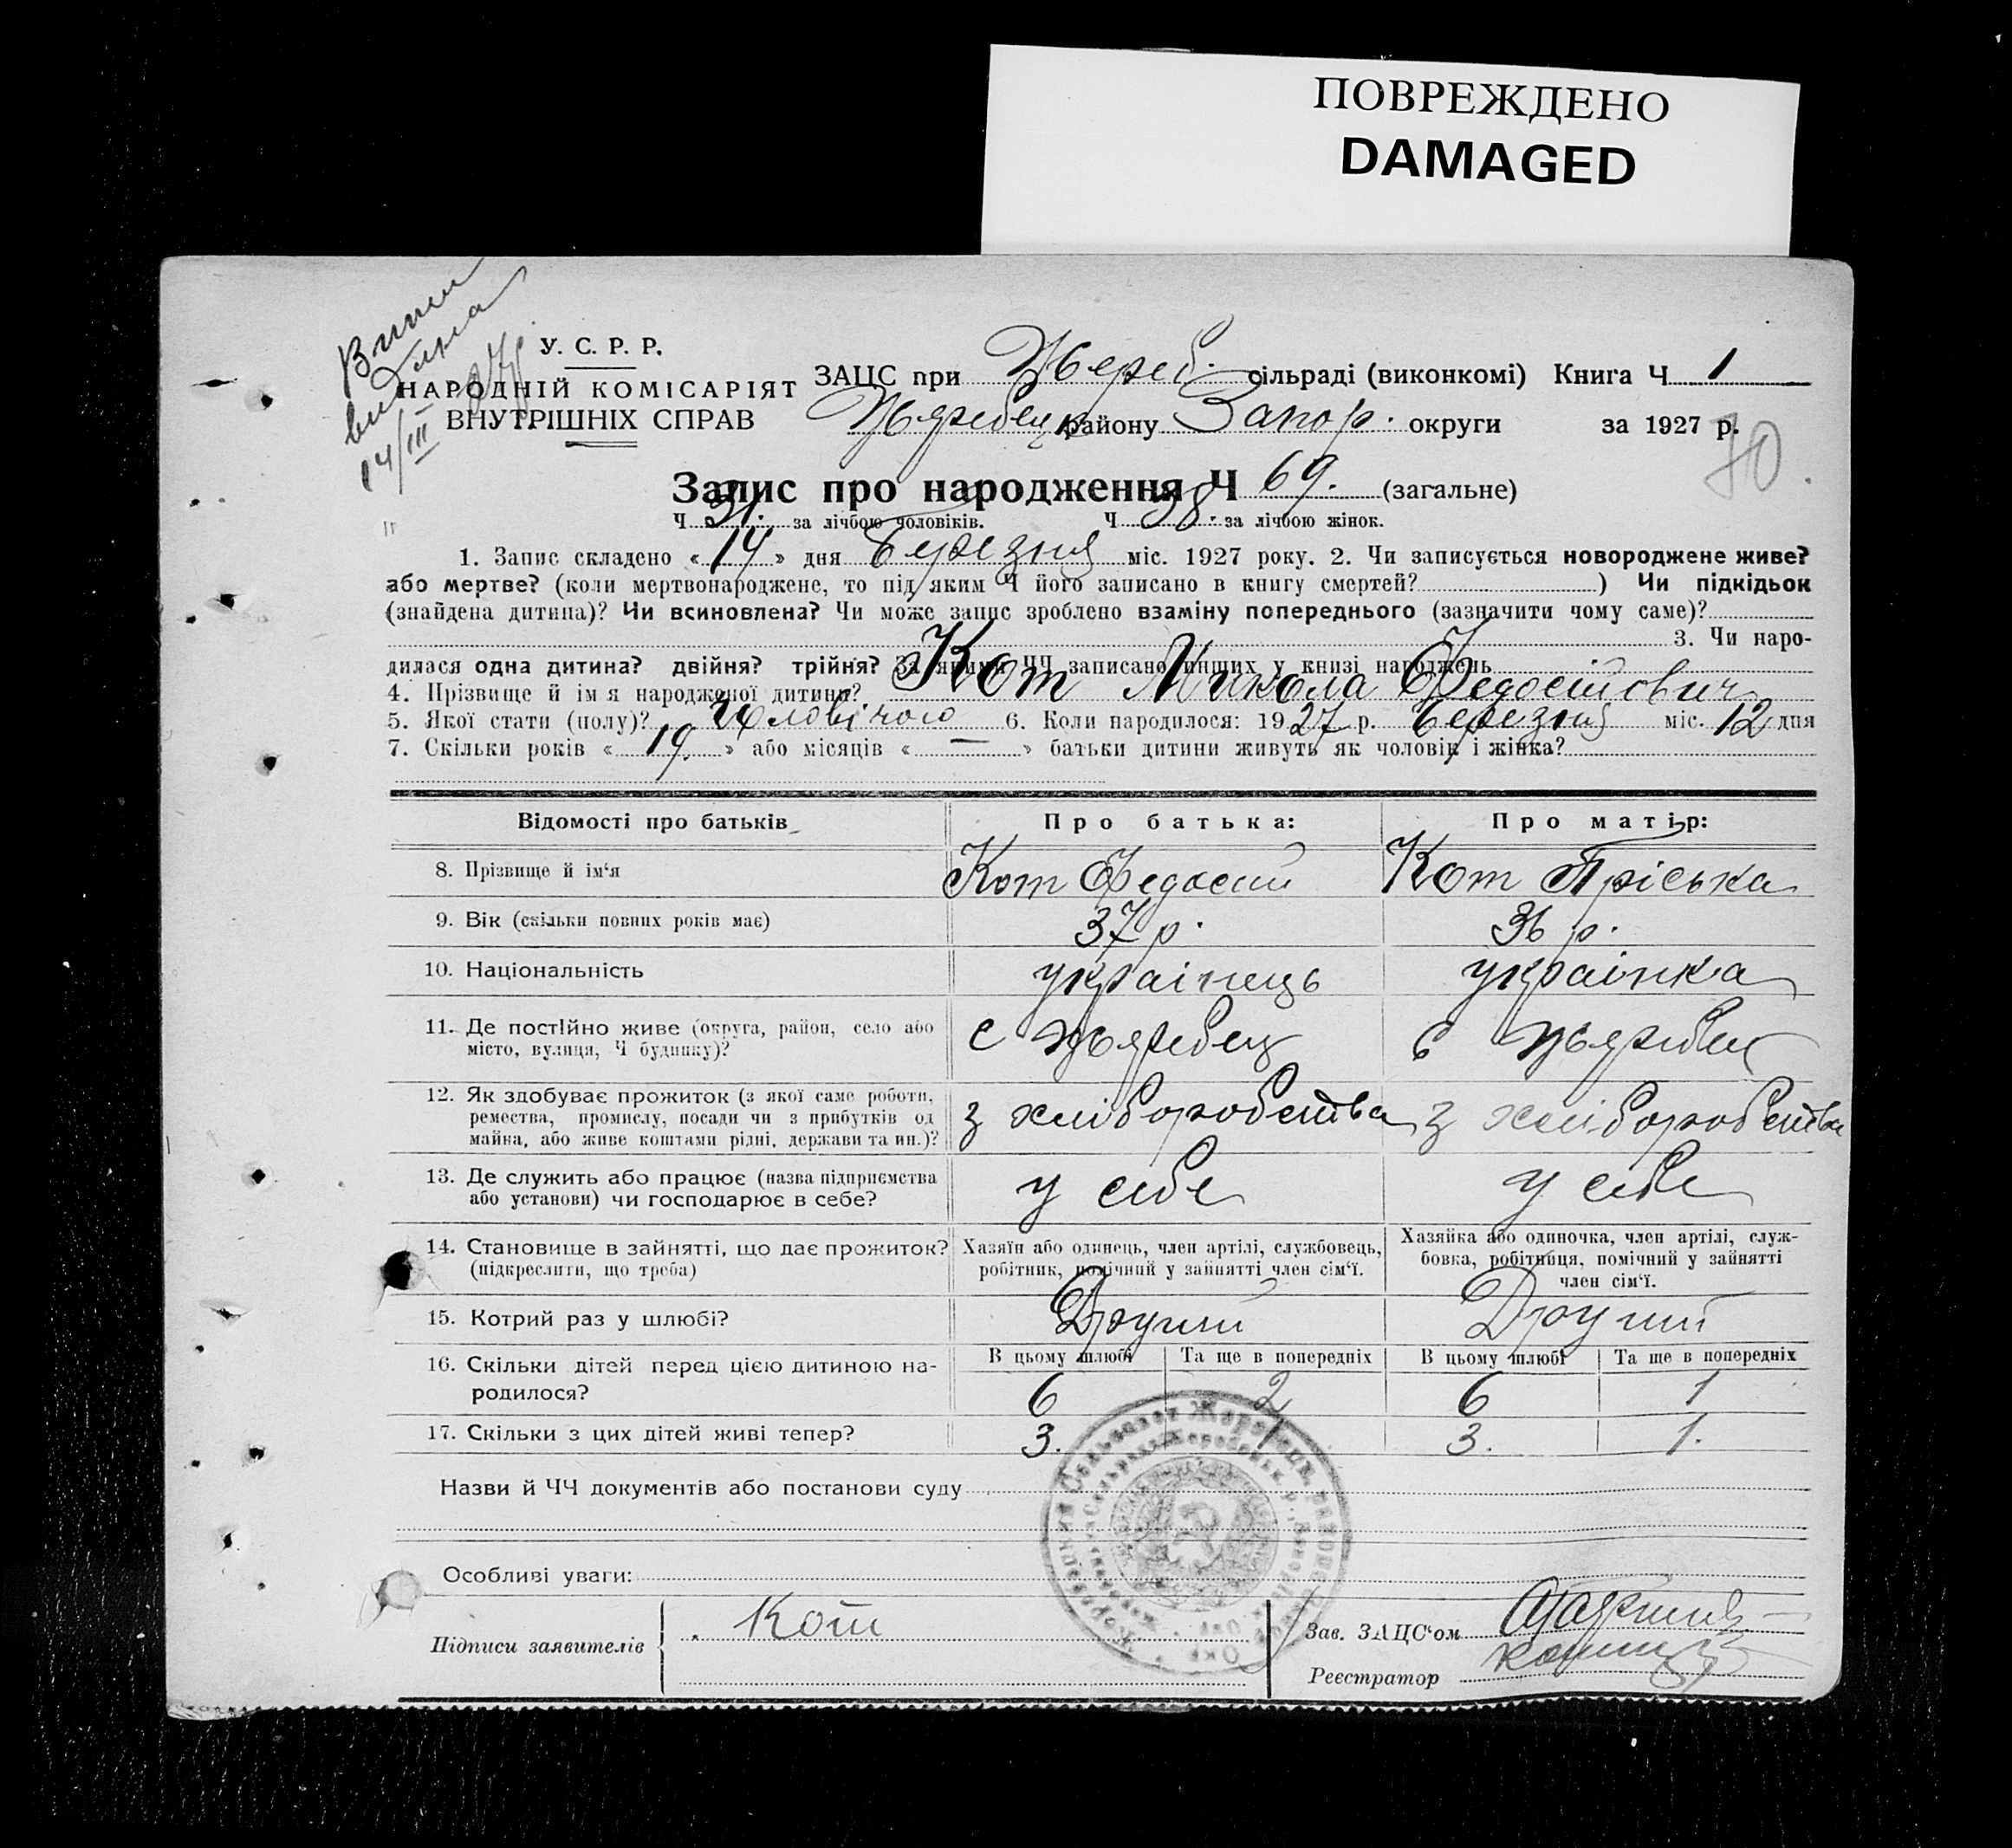 ПОВРЕЖДЕНО
DAMAGED
Випис
видана
14/III 27р.
У. С. Р. Р.
НАРОДНІЙ КОМІСАРІЯТ
ВНУТРІШНІХ СПРАВ
ЗАЦС при Жереб. сільраді (виконкомі) Книга Ч 1
району Запор. округи за 1927 р.
70.
Запис про народження Ч 69. (загальне)
Ч 31. за лічбою чоловіків. Ч 38. за лічбою жінок.
1. Запис складено « 14 » дня Березня міс. 1927 року. 2. Чи записується новороджене живе?
або мертве? (коли мертвонароджене, то під яким Ч його записано в книгу смертей? ) Чи підкідьок
(знайдена дитина)? Чи всиновлена? Чи може запис зроблено взаміну попереднього (зазначити чому саме)?
3. Чи наро-
дилася одна дитина? двійня? трійня? За якими ЧЧ записано инших у книзі народжень
4. Прізвище й ім я народженої дитини? Кот Микола Федосійович
5. Якої стати (полу)? Чоловічого 6. Коли народилося: 19 27 р. Березня міс. 12 дня
7. Скільки років « 19 » або місяців « — » батьки дитини живуть як чоловік і жінка?
Відомості про батьків Про батька: Про матір:
8. Прізвище й ім‘я Кот Федосій Кот Пріська
9. Вік (скільки повних років має) 37 р. 36 р.
10. Національність українець українка
11. Де постійно живе (округа, район, село або
місто, вулиця, Ч будинку)? с Жеребец с Жеребец
12. Як здобуває прожиток (з якої саме роботи,
ремества, промислу, посади чи з прибутків од
майна, або живе коштами рідні, держави та ин.)? з хліборобства з хліборобства
13. Де служить або працює (назва підприємства
або установи) чи господарює в себе? у себе у себе
14. Становище в зайнятті, що дає прожиток?
(підкреслити, що треба)
Хазяїн або одинець, член артілі, службовець,
робітник, помічний у зайнятті член сім‘ї.
Хазяйка або одиночка, член артілі, служ-
бовка, робітниця, помічний у зайнятті
член сім‘ї.
15. Котрий раз у шлюбі? Другий Другий
16. Скільки дітей перед цією дитиною на-
родилося?
В цьому шлюбі Та ще в попередніх В цьому шлюбі Та ще в попередніх
6 2 6 1
17. Скільки з цих дітей живі тепер? 3. 1 3. 1.
Назви й ЧЧ документів або постанови суду
Особливі уваги:
Підписи заявителів Кот
Зав. ЗАЦС‘ом
Реєстратор